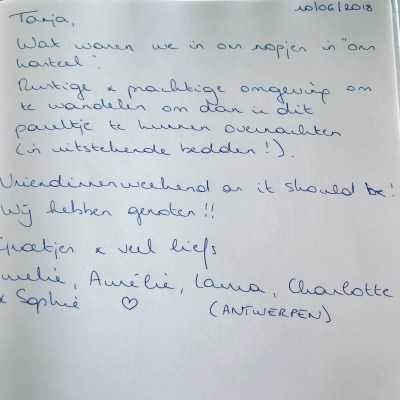 10/06/2018
Tanja,
Wat waren we in ons nopjes in "ons
kasteel".
Rustige & prachtige omgeving om
te wandelen om dan in dit
pareltje te kunnen overnachten
(in uitstekende bedden!).
Vriendinnenweekend as it should be!
Wij hebben genoten!!
Groetjes & veel liefs
Amelie, Aurélie, Lanna, Charlotte
& Sophie ♡ (ANTWERPEN)